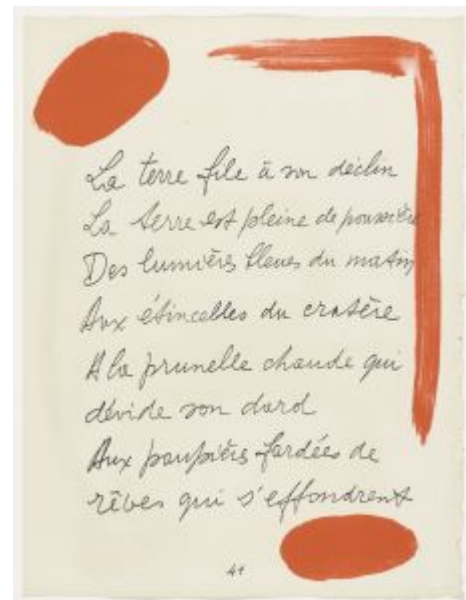 La terre file à son déclin
La terre est pleine de poussière
Des lumières bleues du matin
Aux étincelles du cratère
A la prunelle chaude qui
dévide son dard
Aux paupières fardées de
rêves qui s'effondrent
41